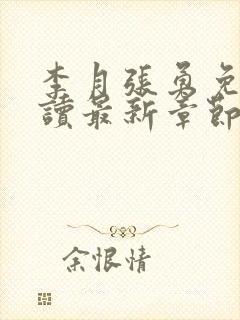 李月張勇免
讀最新章節
余恨情